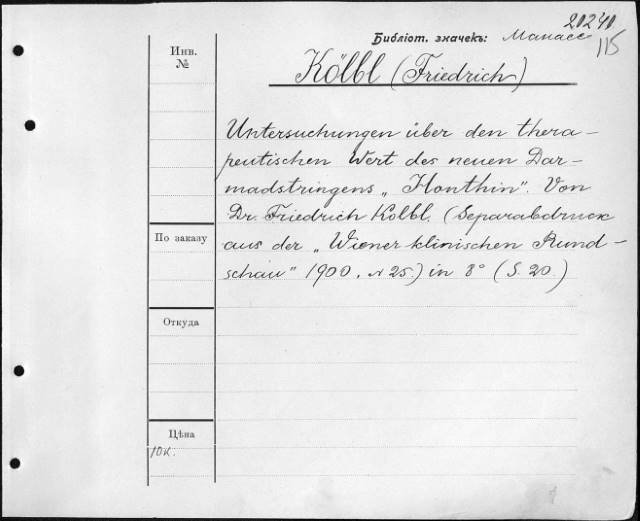 20240
Библіот. значекъ: Манасс
115
Инв.
№
Kölbl (Friedrich)
Untersuchungen über den thera-
peutischen Wert des neuen Dar-
madstringens „Honthin". Von
Dr. Friedrich Kölbl. (Separabdruck
aus der „Wiener klinischen Rund-
schau" 1900. N 25.) in 8° (S. 20.)
По заказу
Откуда
Цѣна
10к.